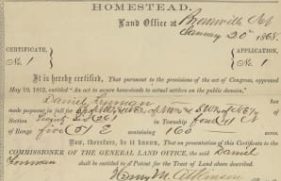 HOMESTEAD.
Land Office at Brownville Neb
January 20th 1868.
CERTIFICATE,
No. 1
APPLICATION,
No. 1
It is hereby certified, That pursuant to the provisions of the act of Congress, approved
May 20, 1862, entitled "An act to secure homesteads to actual settlers on the public domain,"
Daniel Freeman has
made payment in full for of
Section Twenty Six (26) in Township four (4) N
of Range five (5) E containing 160 acres.
Now, therefore, be it known, That on presentation of this Certificate to the
COMMISSIONER OF THE GENERAL LAND OFFICE, the said Daniel
Freeman shall be entitled to a Patent for the Tract of Land above described.
Henry M. Atkinson